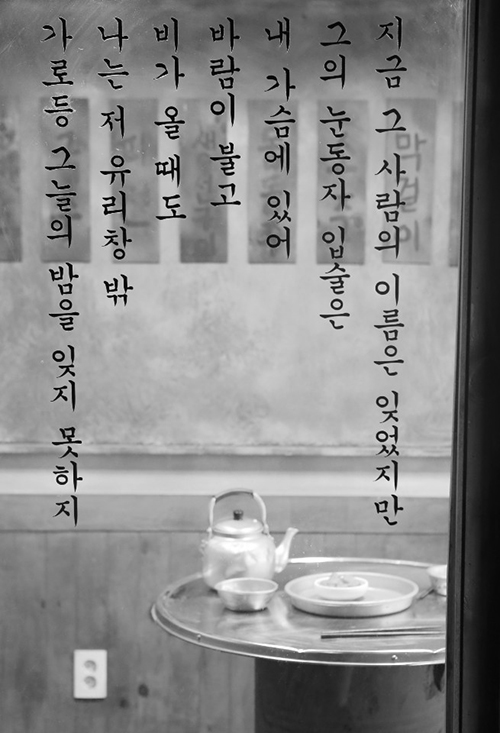 지금 그 사람의 이름은 잊었지만
그의 눈동자 입술은
내 가슴에 있어
바람이 불고
비가 올 때도
나는 저 유리창 밖
가로등 그늘의 밤을 잊지 못하지
막걸리